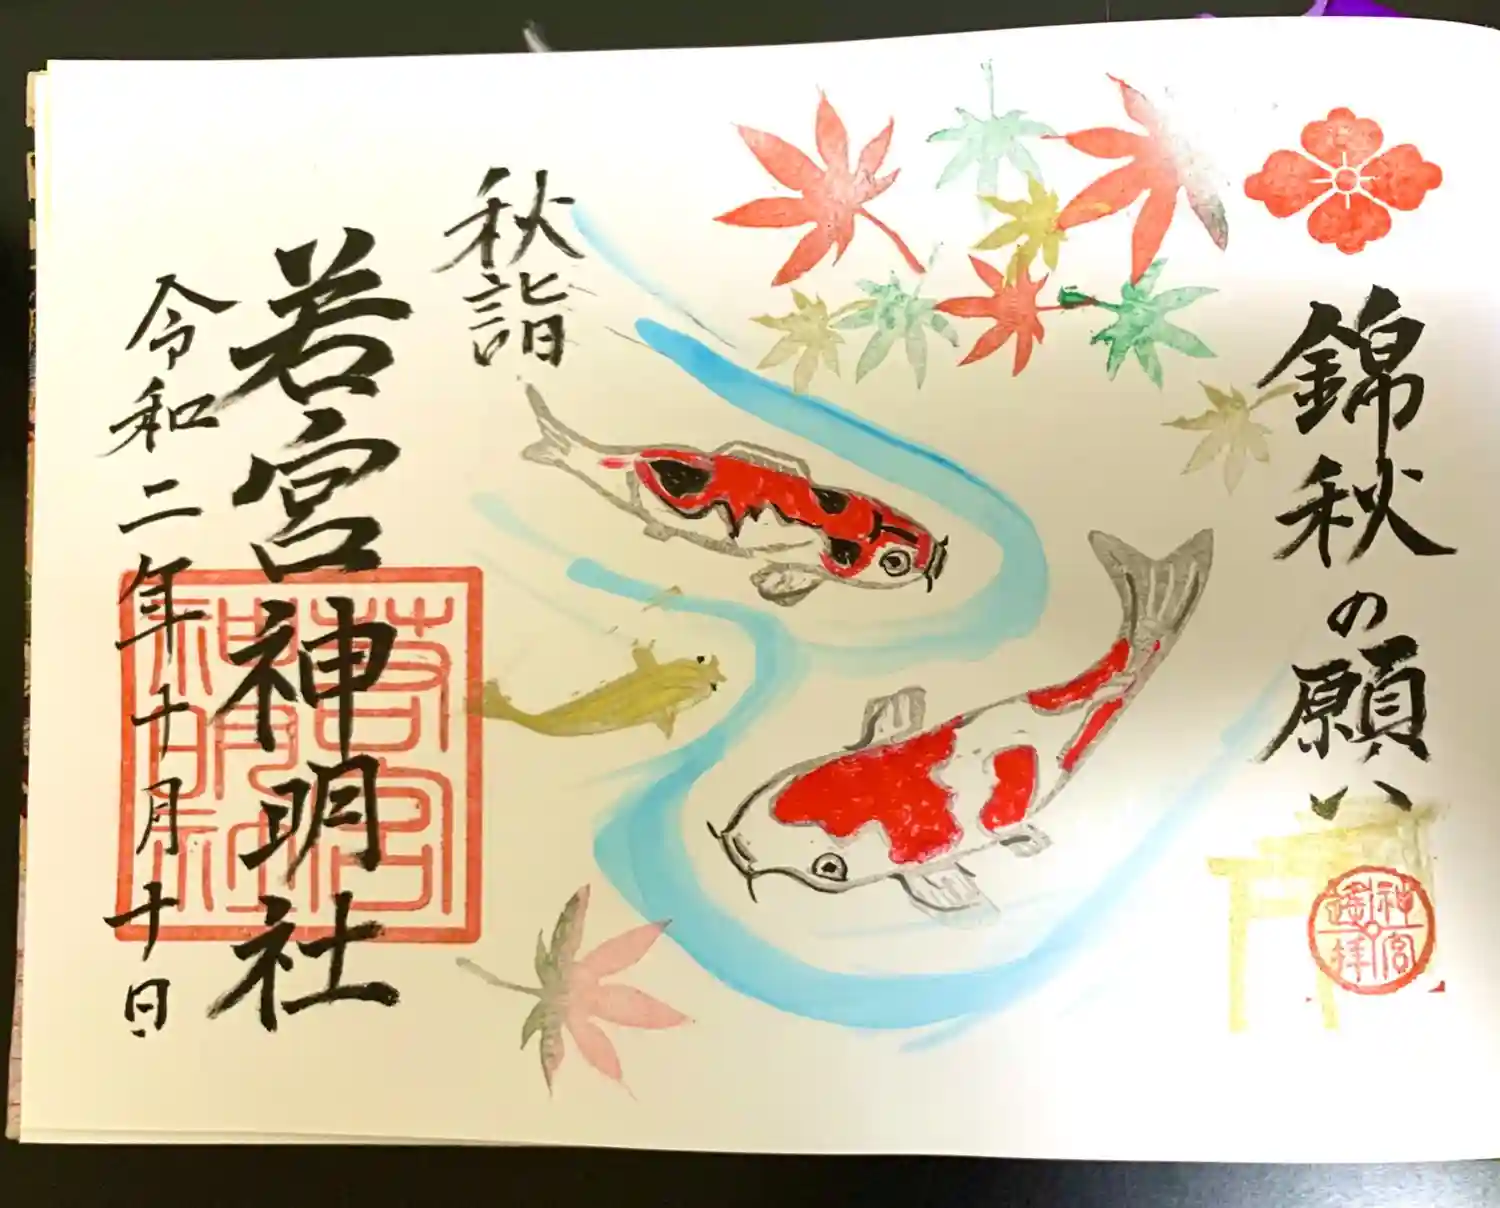 錦秋の願い
神宮
遙拝
秋詣
若宮神明社
若宮
神明社
令和二年十月十日